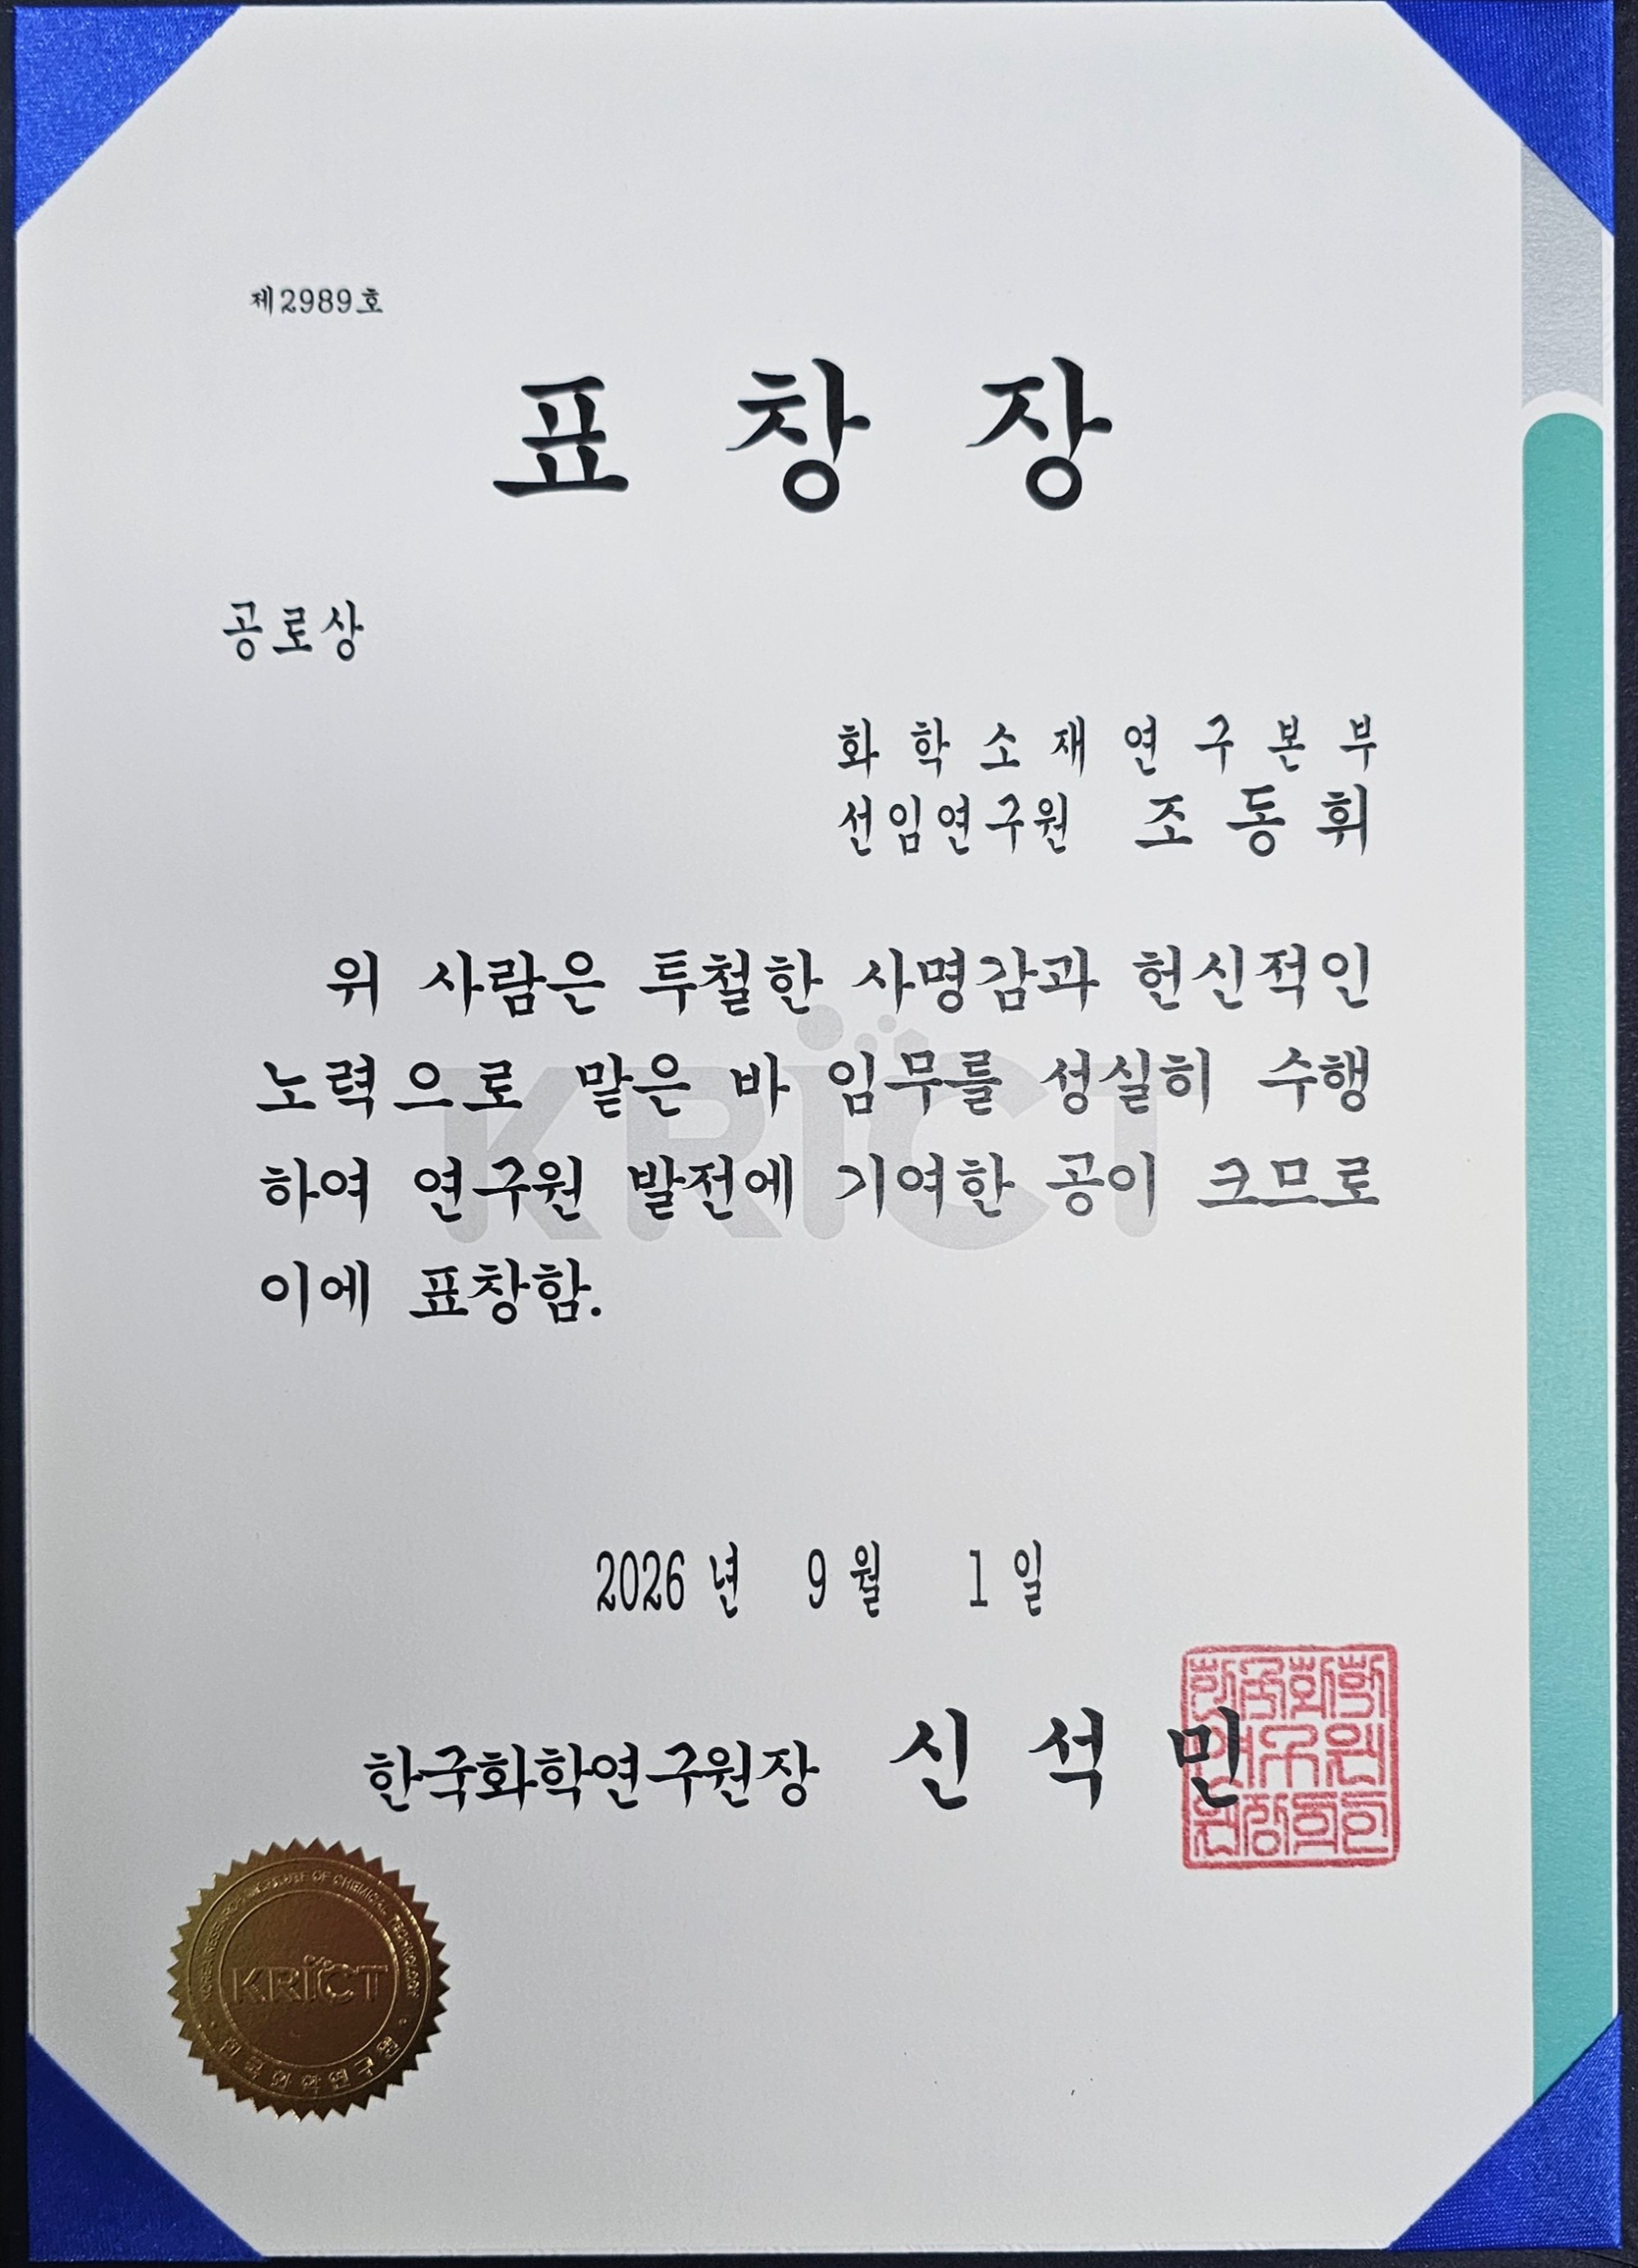 제2989호
표 창 장
공로상
화 학 소 재 연 구 본 부
선임연구원 조 동 휘
위 사람은 투철한 사명감과 헌신적인
노력으로 맡은 바 임무를 성실히 수행
하여 연구원 발전에 기여한 공이 크므로
이에 표창함.
KRICT
2026 년 9 월 1 일
한국화학연구원장 신 석 민
KOREA RESEARCH INSTITUTE OF CHEMICAL TECHNOLOGY
KRICT
한국화학연구원